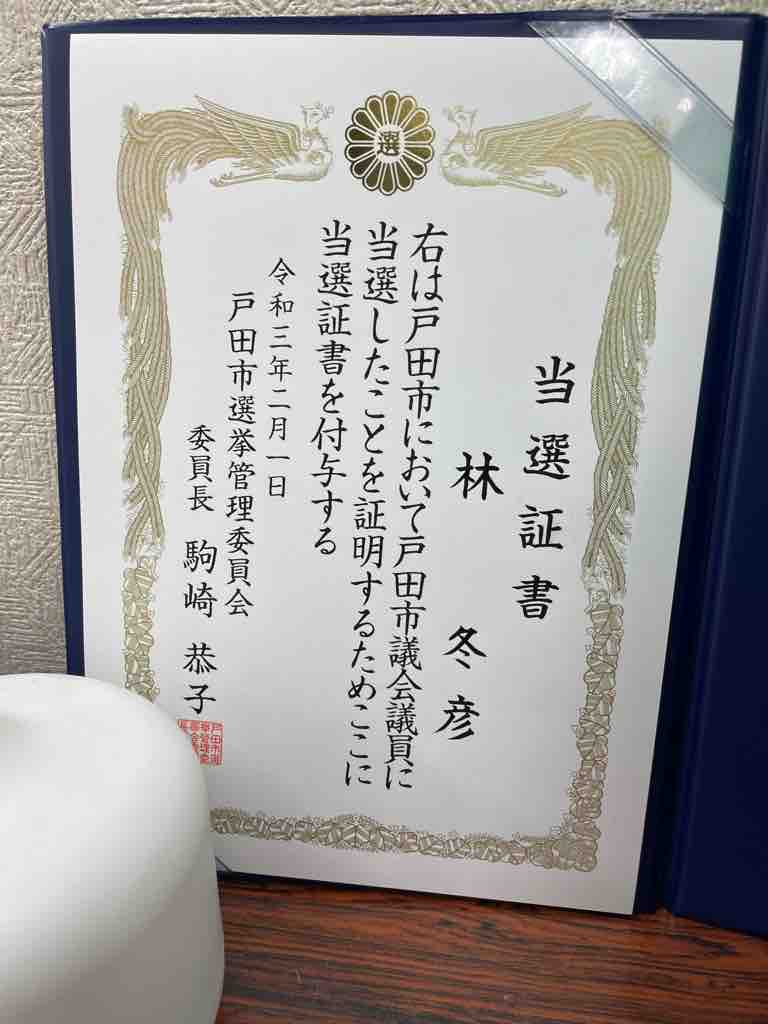 選
当選証書
林 冬彦
右は戸田市において戸田市議会議員に
当選したことを証明するためここに
当選証書を付与する
令和三年二月一日
戸田市選挙管理委員会
委員長 駒崎 恭子